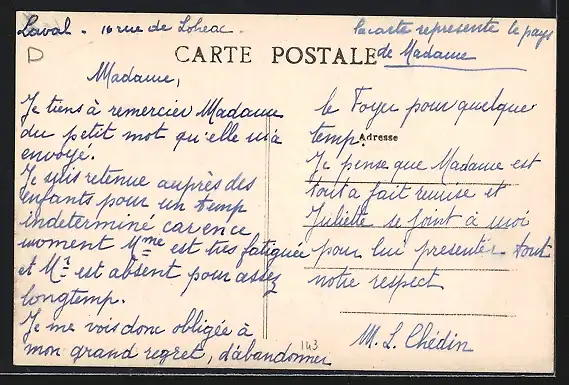 Laval - 16 rue de Lohéac.
la carte represente le pays
de Madame
D
CARTE POSTALE
Madame,
Je tiens à remercier Madame
du petit mot qu'elle m'a
envoyé.
Je suis retenue auprès des
enfants pour un temp
indeterminé car en ce
moment Mme est très fatiguée
et Mr est absent pour assez
longtemp.
Je me vois donc obligée à
mon grand regret, d'abandonner
143
le Foyer pour quelque
temp.
Adresse
Je pense que Madame est
tout a fait remise et
Juliette se joint à moi
pour lui presenter tout
notre respect
M. L. Chédin